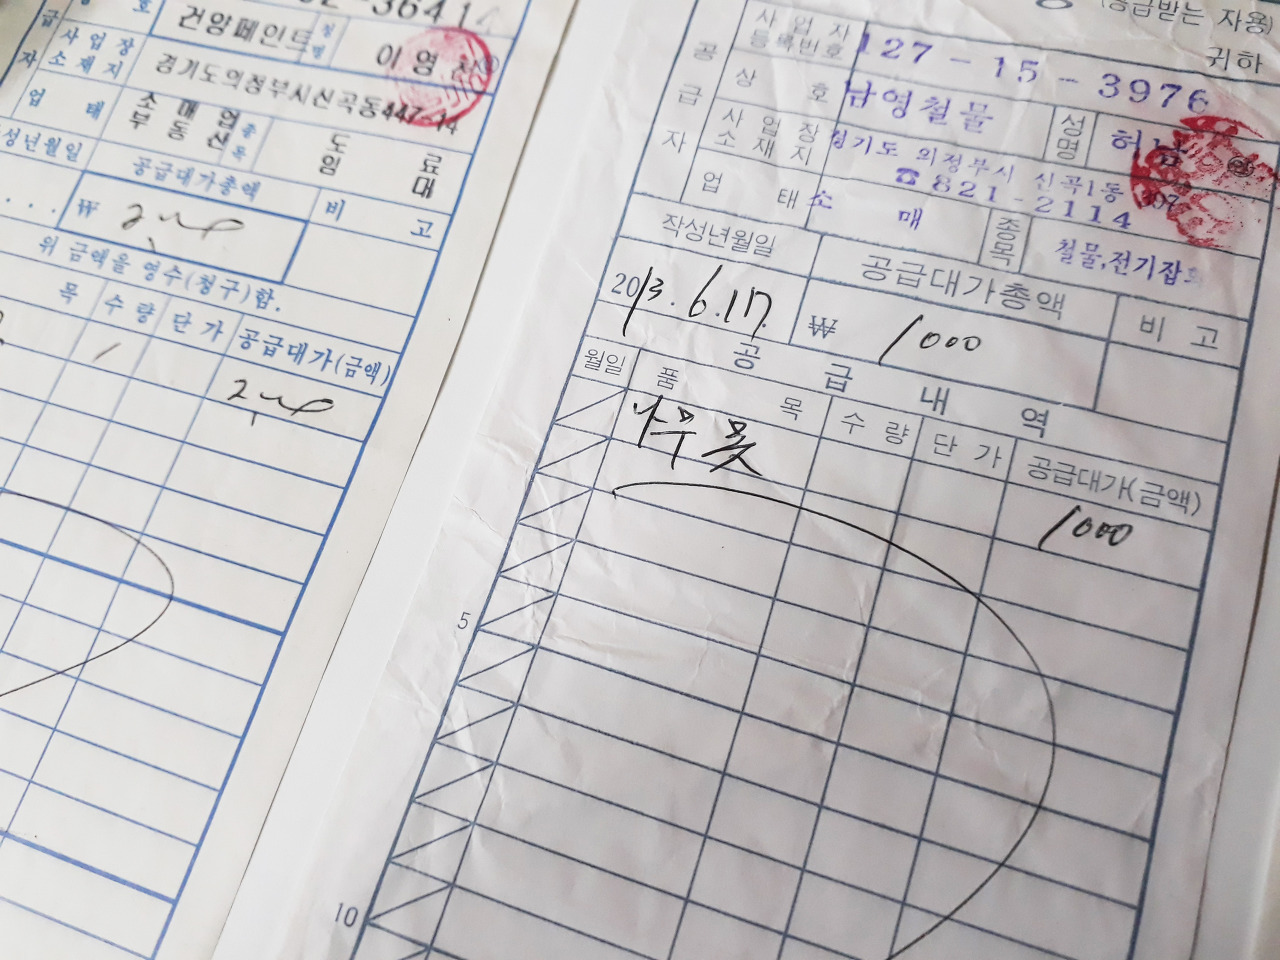 건양페인트
성명
이영
사업장
소재지
경기도의정부시신곡동447-14
업 태
소매업
부동산
종목
도 료
임 대
공급대가총액
비 고
₩
위 금액을 영수(청구)함.
목 수량 단가 공급대가(금액)
1
(공급받는 자용)
귀하
공급자
사업자
등록번호
127-15-3976
상 호
남영철물
성명
허남
사업장
소재지
경기도 의정부시 신곡1동 307
☎821-2114
업 태
소 매
종목
철물,전기잡화
작성년월일
공급대가총액
비 고
2013.6.17.
₩ 1000
공 급 내 역
월일 품 목 수 량 단 가 공급대가(금액)
나무못 1000
5
10